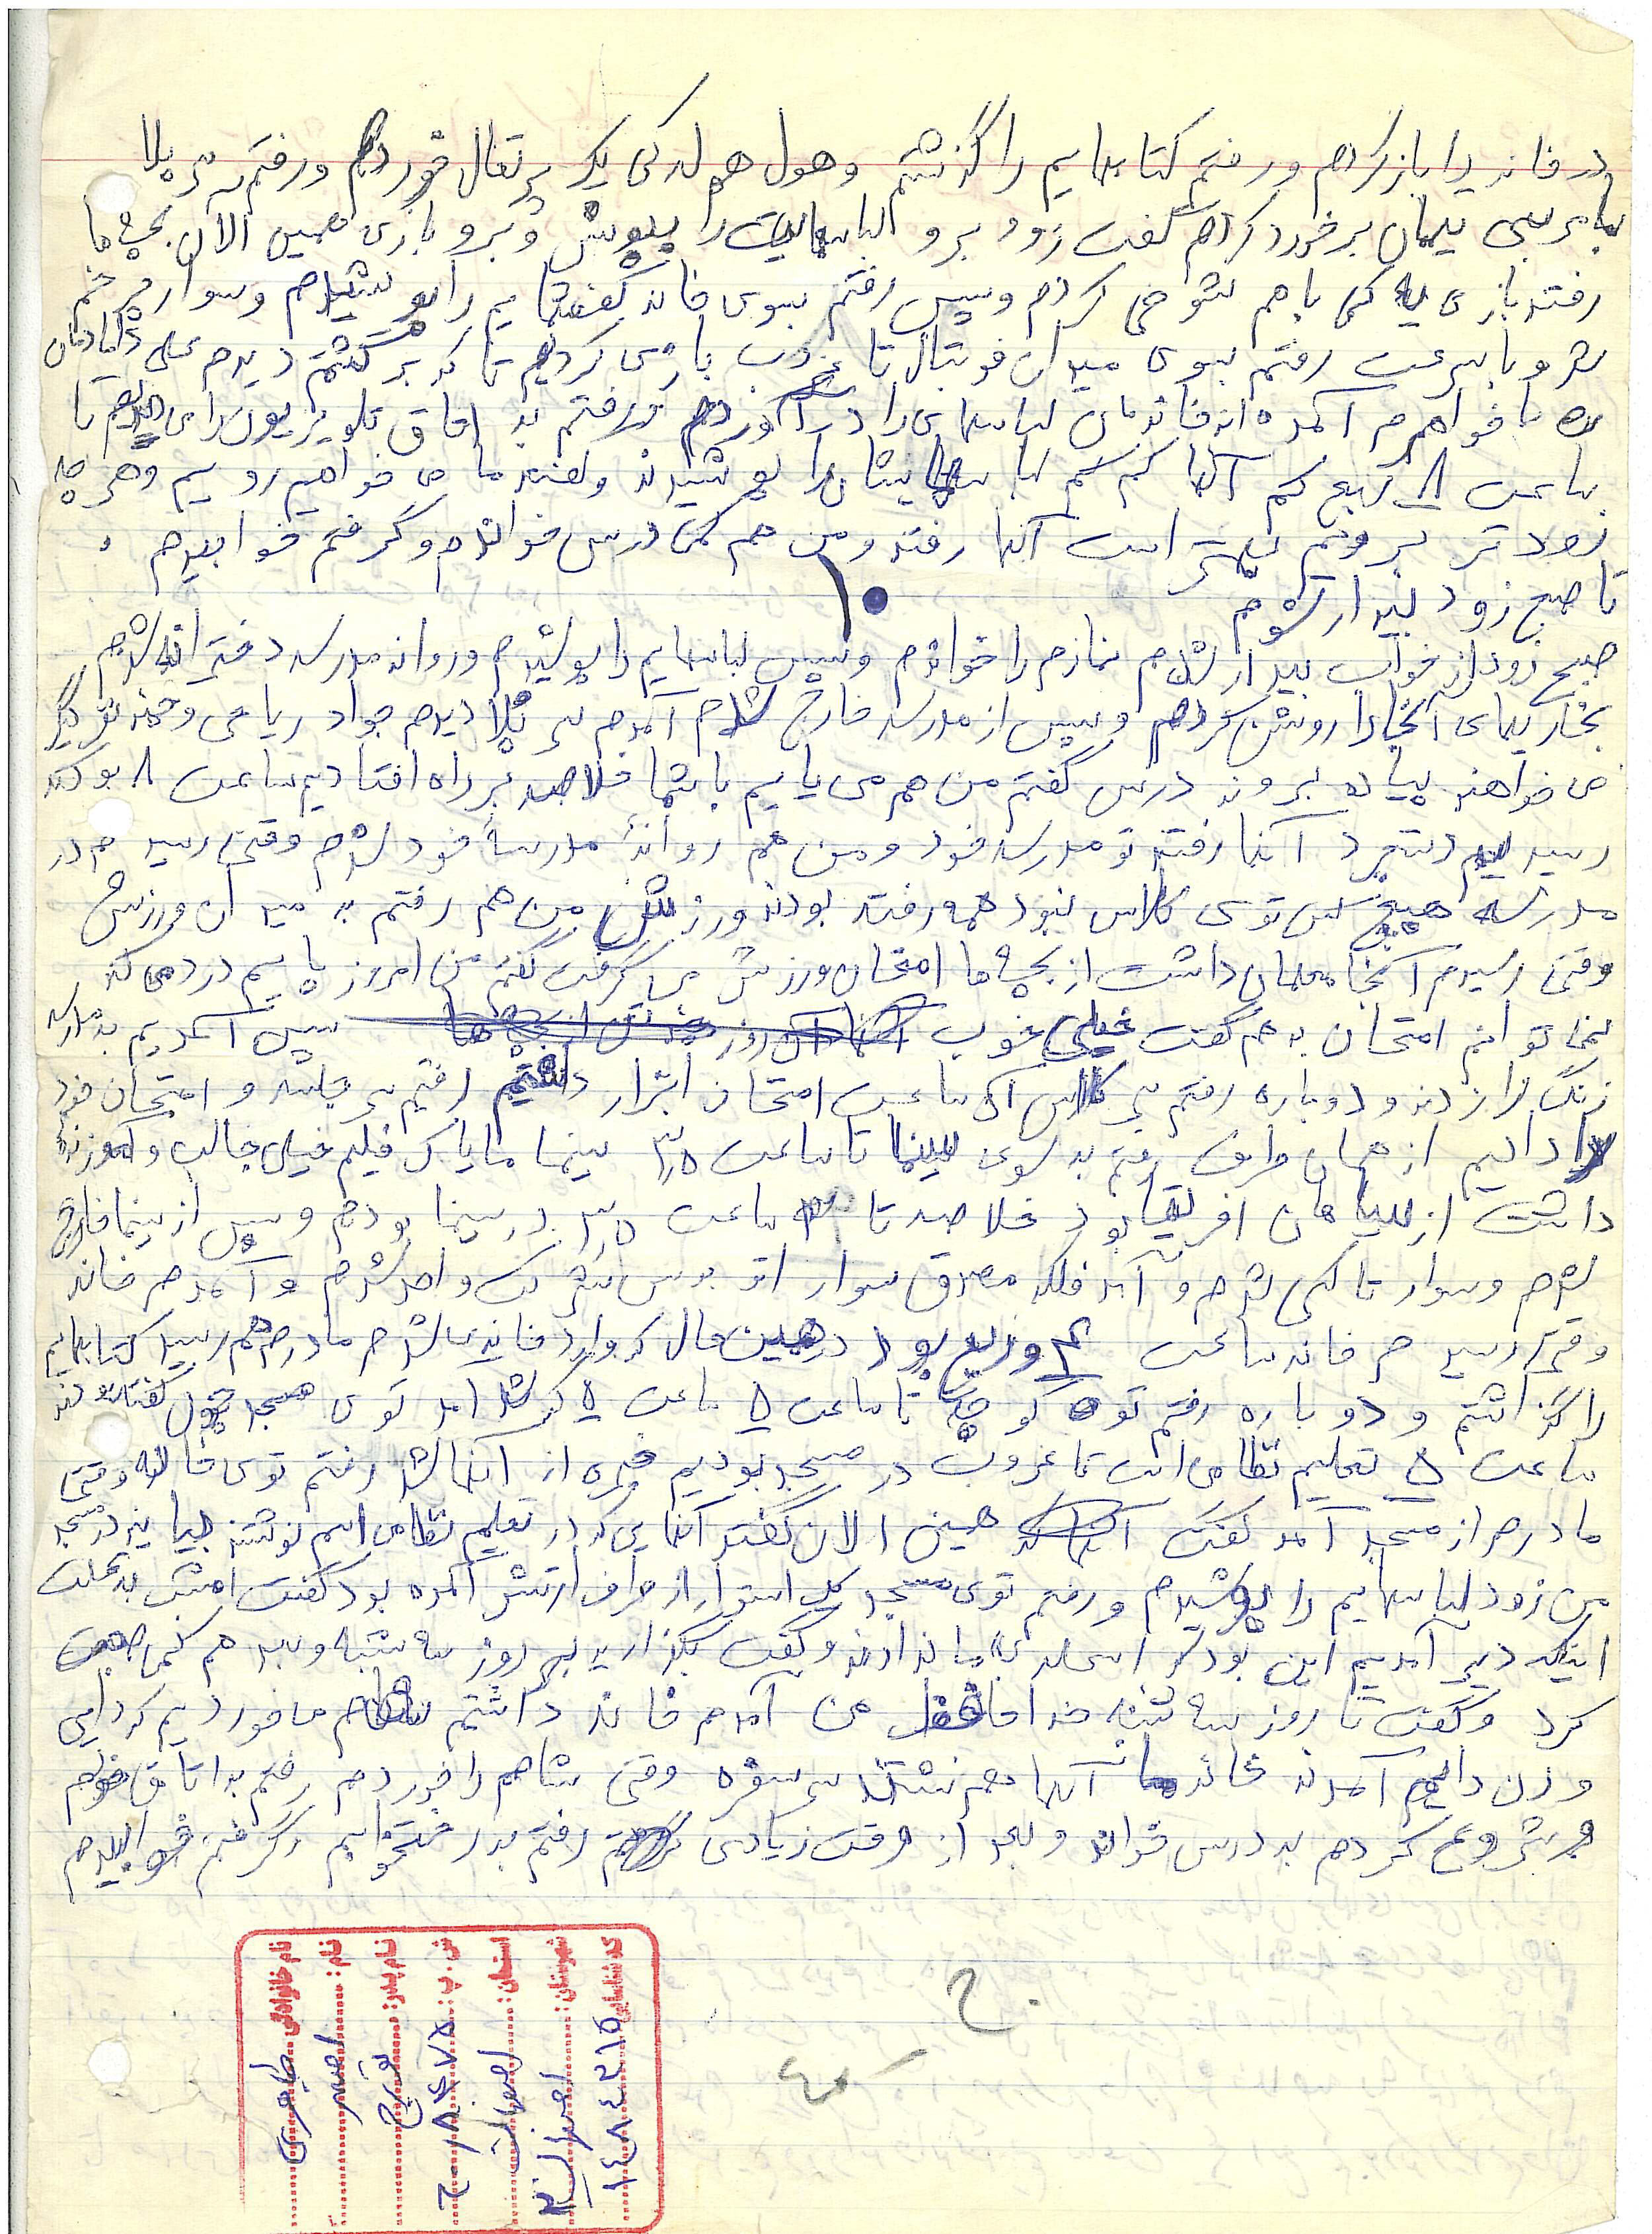 در خانه را باز کردم و رفتم کتابهایم را گذشتم و هول هولدکی یک پرتقال خوردم و رفتم سر پلا
با عباسی سلمان برخورد کردم گفت زود برو لباسهایت را بپوش و برو بازی همین الان بچه ها
رفتند بازی یه کمی با هم شوخی کردم و سپس رفتم بسوی خانه کفشهایم را پوشیدم و سوار چرخم
شد و با سرعت رفتم بسوی میدان فوتبال تا غروب بازی کردیم تا که برگشتم دیدم علی دامادمان
با خواهرم آمده اند خانه مان لباسهای را در آوردم و رفتم به اطاق تلویزیون را می دیدم تا
ساعت ۸ ربع کم آنها کم کم لباسهایشان را پوشیدند و گفتند ما می خواهیم رویم و هر چه
زودتر برویم بهتر است آنها رفتند و من هم کمی درس خواندم و گرفتم خوابیدم
تا صبح زود بیدار شوم
۱۰
صبح زود از خواب بیدار شدم نمازم را خواندم و سپس لباسهایم را پوشیدم و روانه مدرسه دخترانه شدم
بخاریهای آنجا را روشن کردم و سپس از مدرسه خارج شدم آمدم سر پلا دیدم جواد ریاحی و چند نفر دیگر
می خواهند پیاده بروند درس گفتم من هم می یایم با شما خلاصه بر راه افتادیم ساعت ۸ بود که
رسیدیم دستجرد آنها رفتند تو مدرسه خود و من هم روانهٔ مدرسهٔ خود شدم وقتی رسیدم در
مدرسه هیچ کس توی کلاس نبود همه رفته بودند ورزش من هم رفتم به میدان ورزش
وقتی رسیدم آنجا معلمان داشت از بچه ها امتحان ورزش می گرفت گفتم من امروز پایم درد می کند
نمی توانم امتحان بدهم گفت خیلی خوب سپس آمدیم به مدرسه
زنگ را زدند و دوباره رفتم سر کلاس آن ساعت امتحان ابزار داشتیم رفتیم سر جلسه و امتحان خود
را دادیم از همان طرف رفتم به سوی سینما تا ساعت ۳٫۵ سینما مایاک فیلم خیلی جالب و آموزنده
داشت از سیاهان افریقا بود خلاصه تا ساعت ۳٫۵ در سینما بودم و سپس از سینما خارج
شدم و سوار تاکسی شدم و آمد فلکه مصدق سوار اتوبوس شرکت واحد شدم و آمدم خانه
وقتی رسیدم خانه ساعت ۴ و ربع بود در همین حال که وارد خانه شدم مادرم هم رسید کتابهایم
را گذاشتم و دوباره رفتم توی کوچه تا ساعت ۵ ساعت ۵ که شد آمد توی مسجد چون گفته بودند
ساعت ۵ تعلیم نظامی است تا غروب در مسجد بودیم خبره از آنها نشد رفتم توی خانه وقتی
مادرم از مسجد آمد گفت همین الان گفتند آنهایی که در تعلیم نظامی اسم نوشتند بیایند در مسجد
من زود لباسهایم را پوشیدم و رفتم توی مسجد یک استوار از طرف ارتش آمده بود گفت امشب به علت
اینکه دیر آمدیم این بود که اسلحه به ما ندادند و گفت بگذارید برای روز سه شنبه و بعد هم کمی صحبت
کرد و گفت تا روز سه شنبه خدا حافظ من آمدم خانه داشتم شام می خوردیم که دایی
و زن داییم آمدند خانه ما آنها هم نشستند سر سفره وقتی شام را خوردم رفتم به اتاق خودم
و شروع کردم به درس خواندن و بعد از وقت زیادی رفتم به رختخوابم و گرفتم خوابیدم
نام خانوادگی: طاهری
نام: اصغر
نام پدر: تورج
ش . پ: ۲۰۸۴۷۵
استان: اصفهان
شهرستان: اصفهان
کد شناسایی: ۱۴۸۴۳۱۵